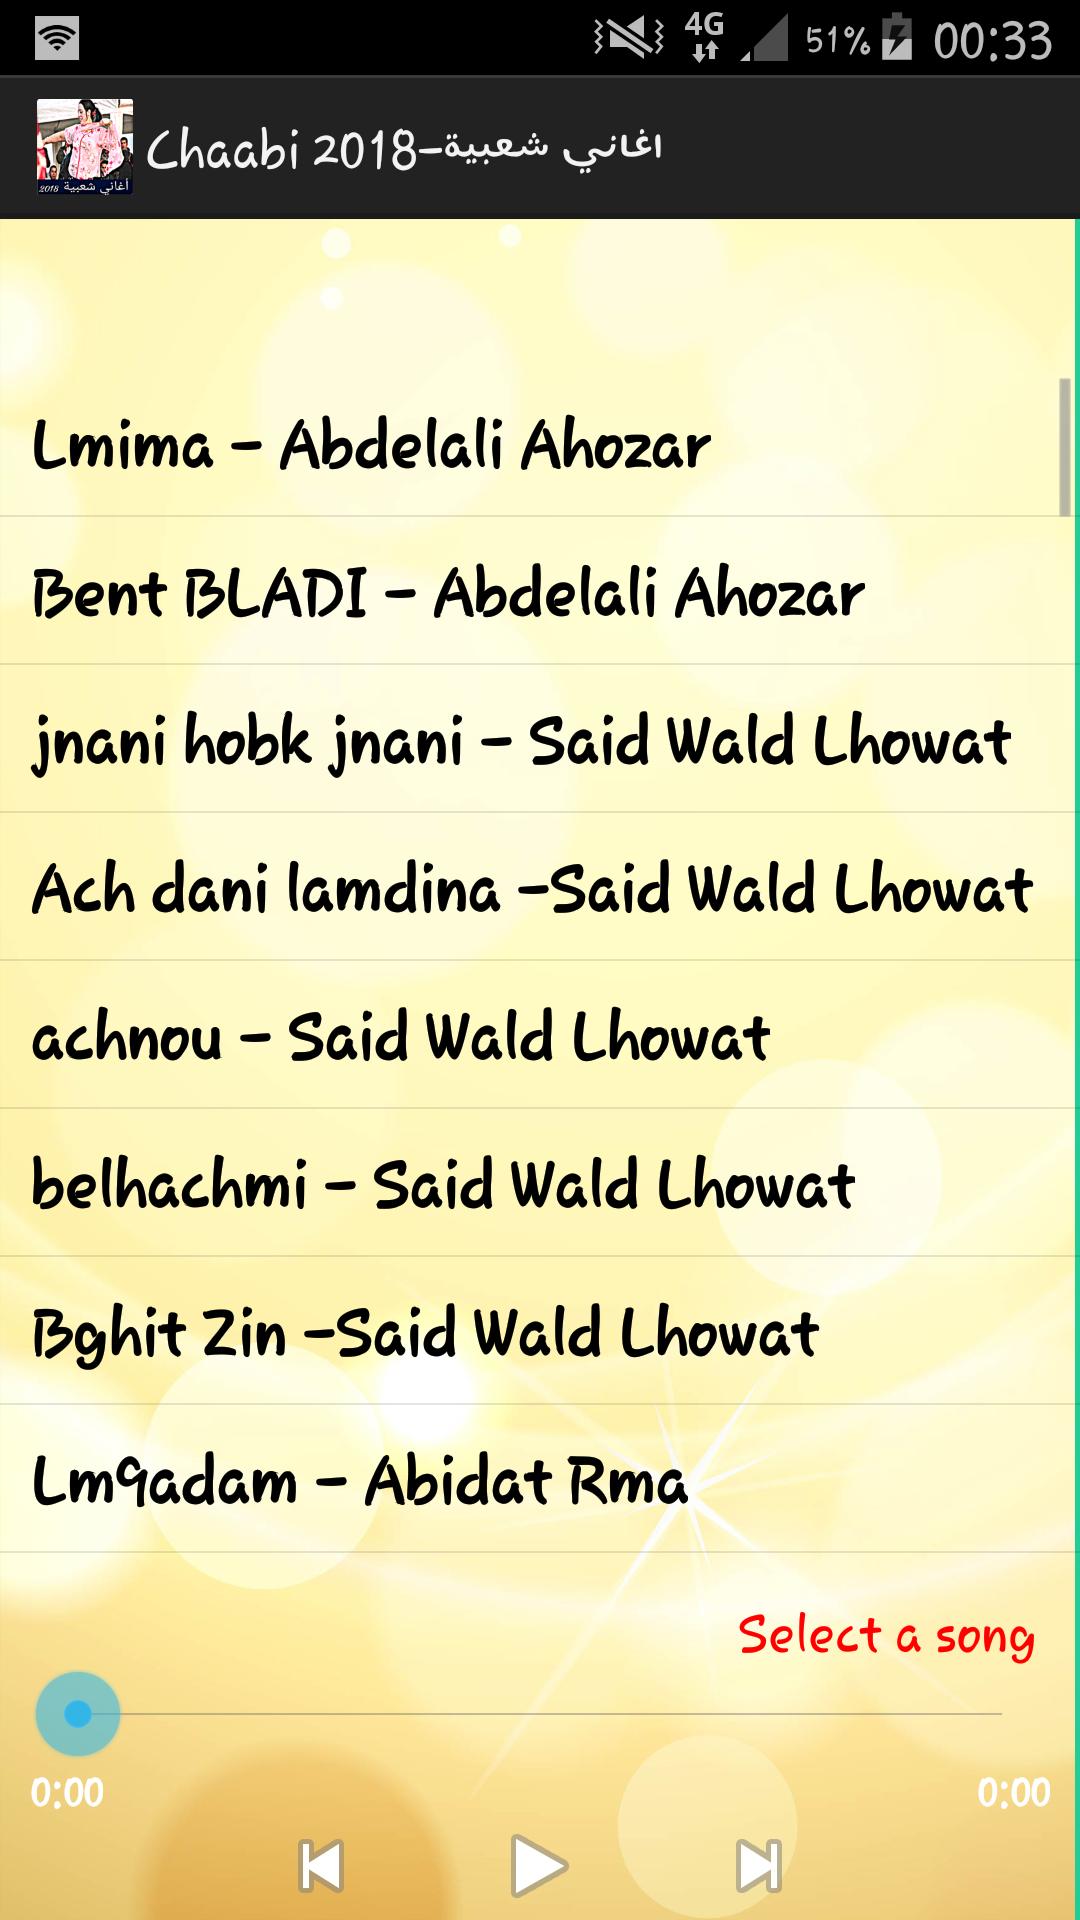 4G 51% 00:33
2018 أغاني شعبية
Chaabi 2018-اغاني شعبية
Lmima - Abdelali Ahozar
Bent BLADI - Abdelali Ahozar
jnani hobk jnani - Said Wald Lhowat
Ach dani lamdina -Said Wald Lhowat
achnou - Said Wald Lhowat
belhachmi - Said Wald Lhowat
Bghit Zin -Said Wald Lhowat
Lm9adam - Abidat Rma
Select a song
0:00 0:00